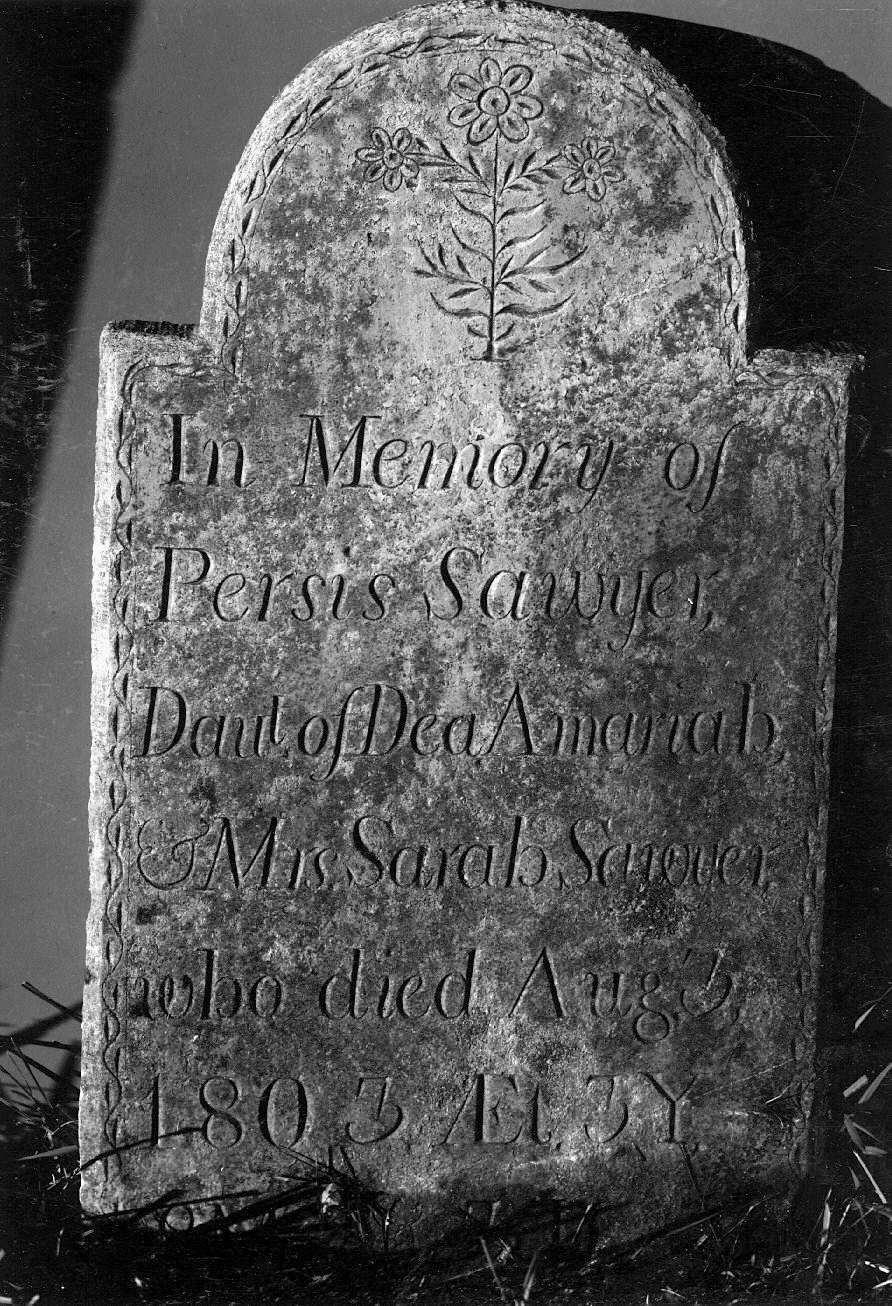 In Memory of
Persis Sawyer,
Daut. of Dea Amariah,
& Mrs Sarah Sawyer,
who died Aug. 3,
1803 Æt. 3Y